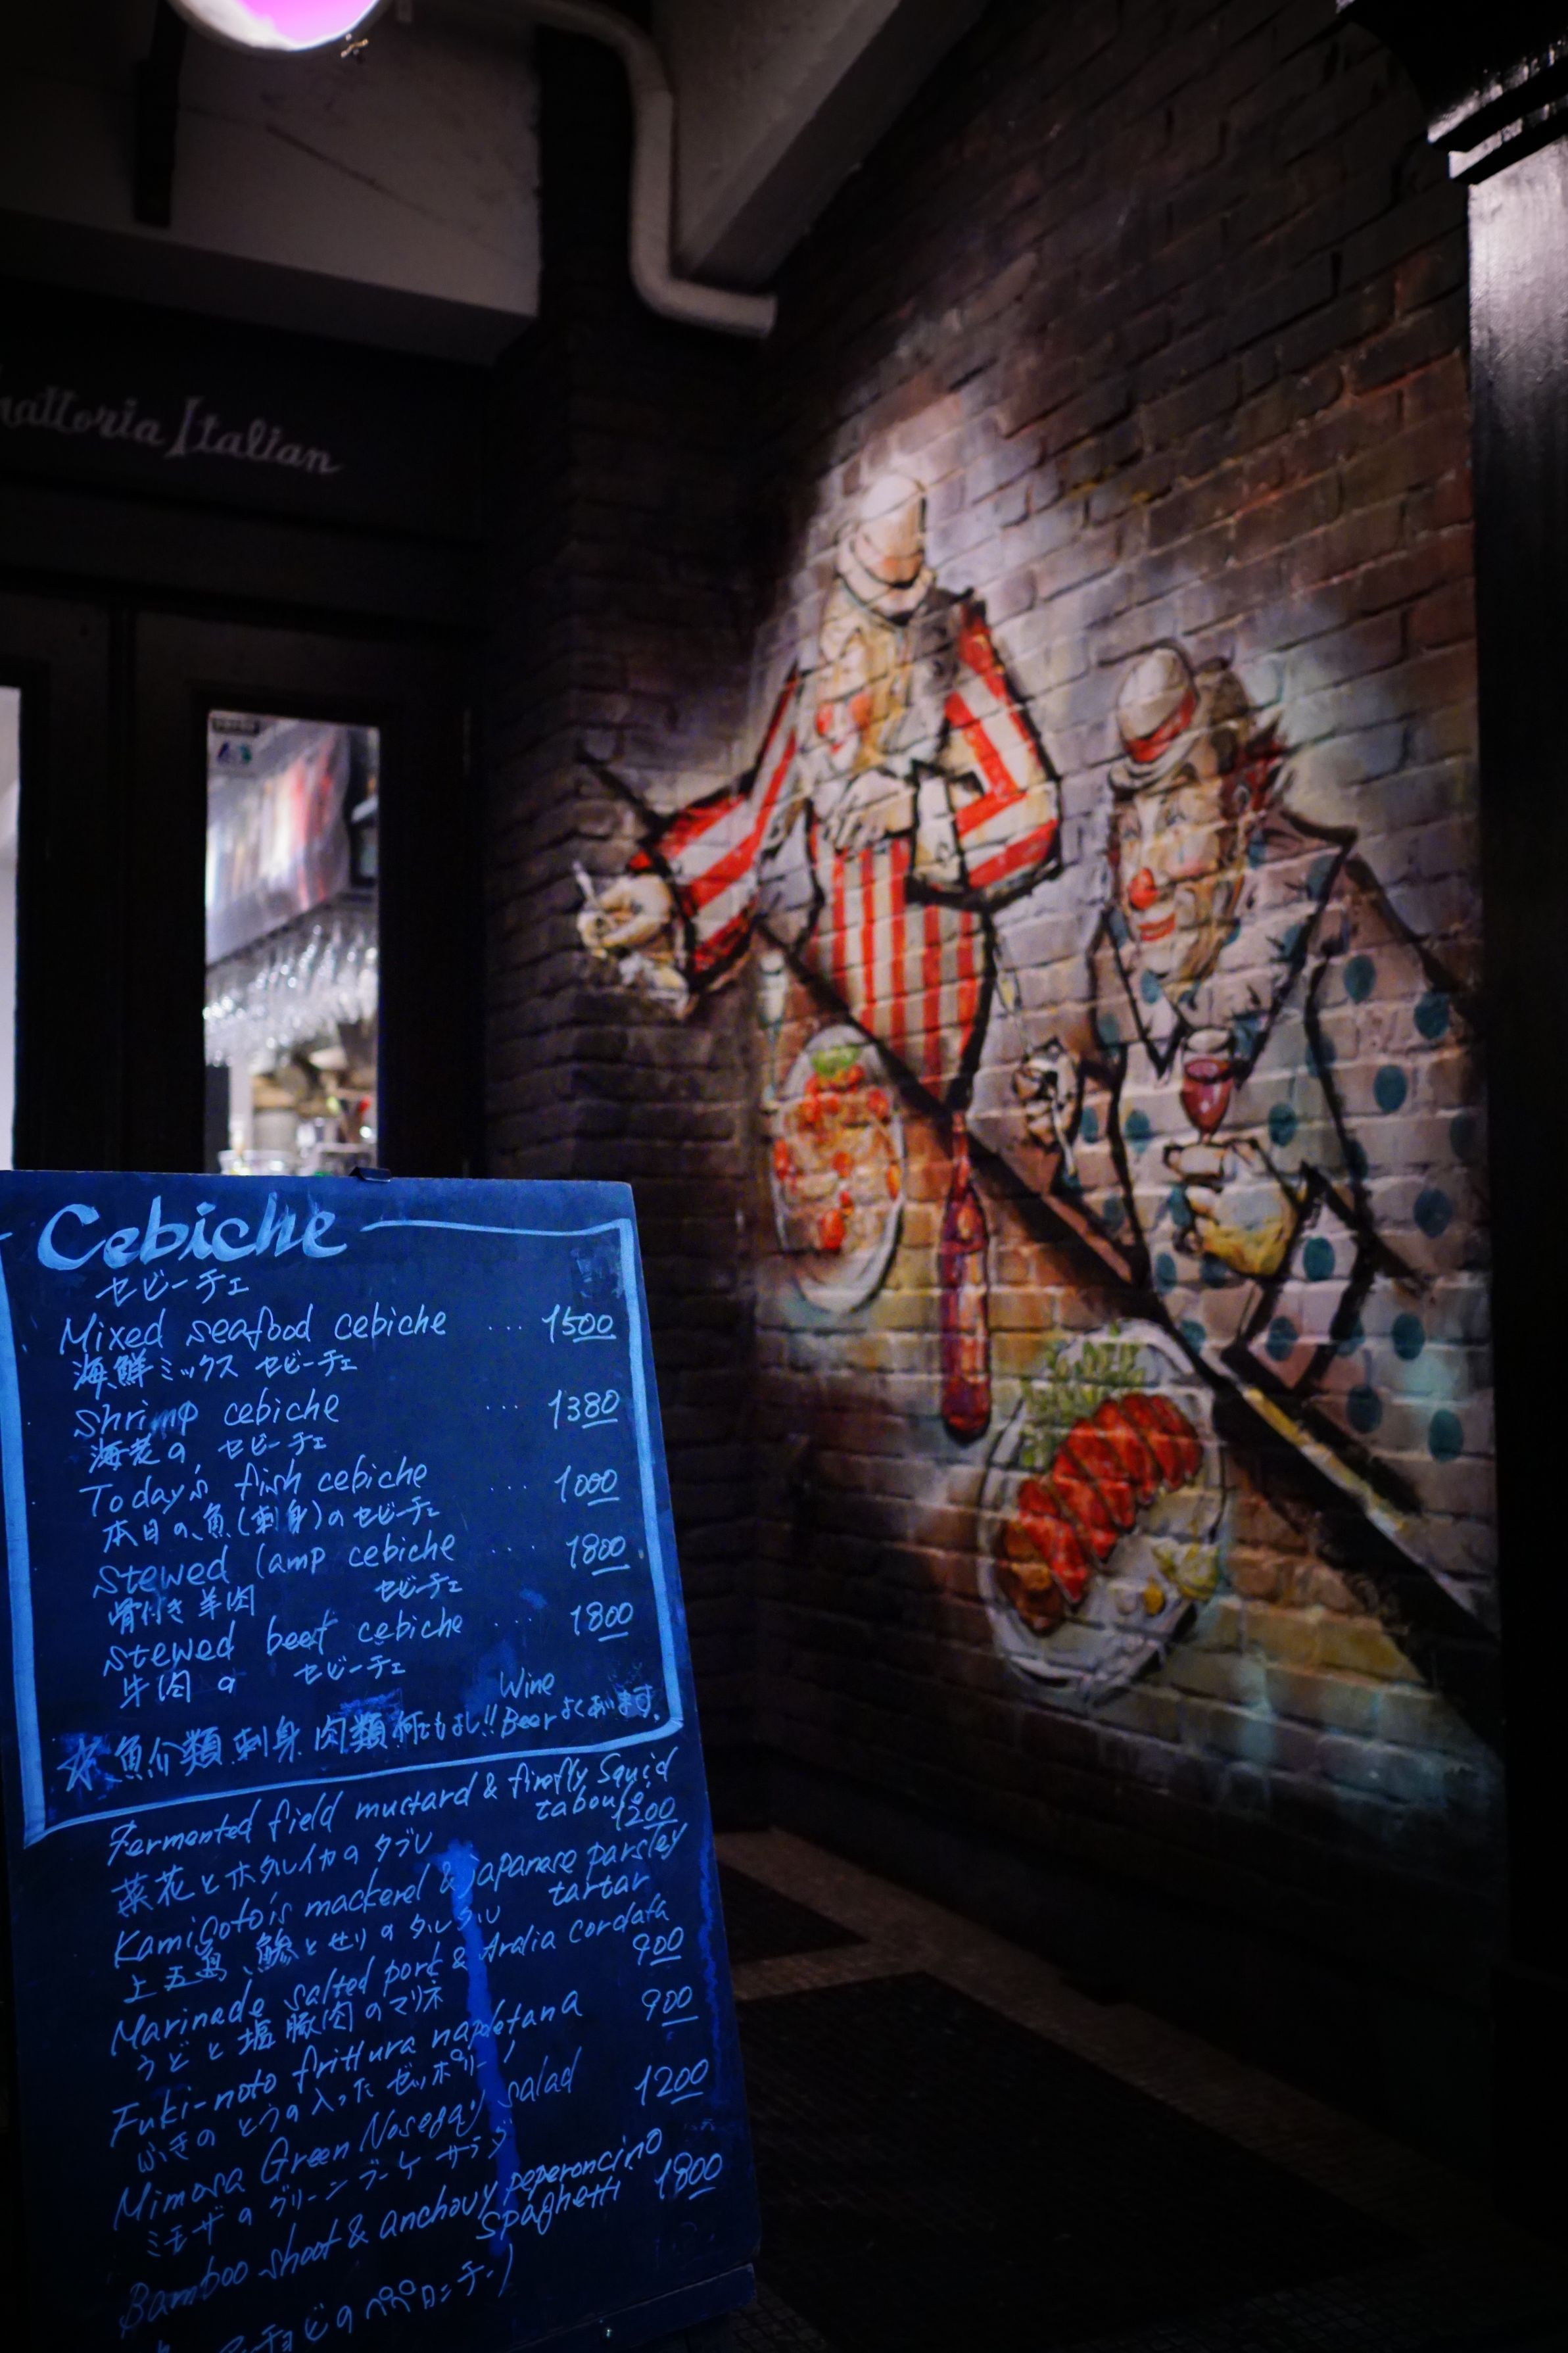 rattoria Italian
Cebiche
セビーチェ
Mixed seafood cebiche .... 1500
海鮮ミックス セビーチェ
Shrimp cebiche ... 1380
海老の、セビーチェ
Today's fish cebiche .... 1000
本日の魚(刺身)のセビーチェ
Stewed lamp cebiche .... 1800
骨付き羊肉 セビーチェ
Stewed beef cebiche .... 1800
牛肉の セビーチェ
Wine
魚介類 刺身 肉類何でもよし!! Beer よくあいます。
Fermented field mustard & firefly Squid
taboule
1200
菜花とホタルイカのタブレ
Kamigoto's mackerel & japanese parsley
tartar
上五島、鯵とせりのタルタル
Marinade salted pork & Aralia cordata
900
うどと塩豚肉のマリネ
Fuki-noto frittura napoletana 900
ふきのとうの入った ゼッポリーノ
Mimosa Green Nosegay salad 1200
ミモザのグリーンブーケ サラダ
Bamboo shoot & anchovy peperoncino
spaghetti 1800
チョビのペペロンチーノ